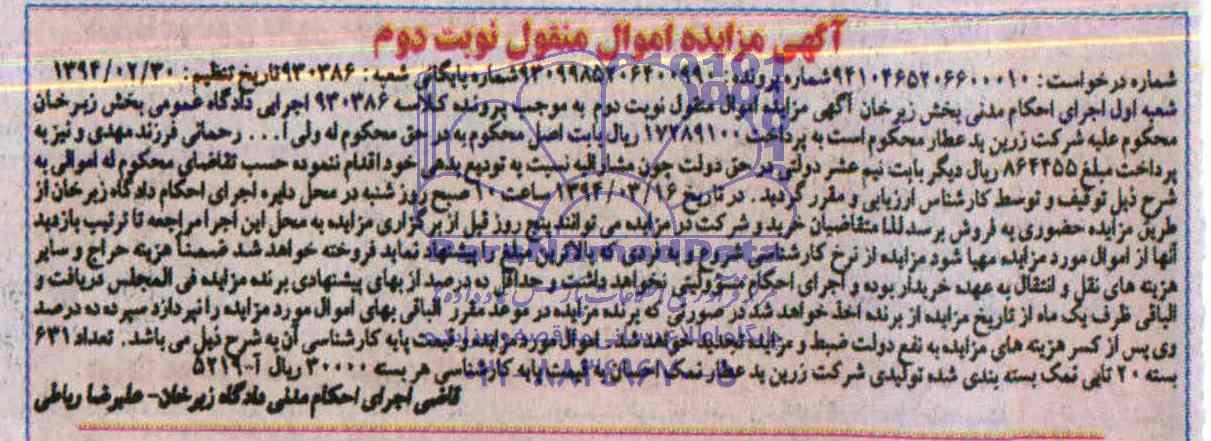 آگهی مزایده اموال منقول نوبت دوم
شماره درخواست: ۹۴۱۰۴۶۵۲۰۶۶۰۰۰۱۰ شماره پرونده: ۹۳۰۹۹۸۵۲۰۶۴۰۰۹۹۰ شماره بایگانی شعبه: ۹۳۰۳۸۶ تاریخ تنظیم: ۱۳۹۴/۰۲/۳۰
شعبه اول اجرای احکام مدنی بخش زبرخان آگهی مزایده اموال منقول نوبت دوم به موجب پرونده کلاسه ۹۳۰۳۸۶ اجرایی دادگاه عمومی بخش زبرخان
محکوم علیه شرکت زرین ید عطار محکوم است به پرداخت ۱۷۲۸۹۱۰۰ ریال بابت اصل محکوم به در حق محکوم له ولی ا... رحمانی فرزند مهدی و نیز به
پرداخت مبلغ ۸۶۴۴۵۵ ریال دیگر بابت نیم عشر دولتی در حق دولت چون مشارالیه نسبت به تودیع بدهی خود اقدام ننموده حسب تقاضای محکوم له اموالی به
شرح ذیل توقیف و توسط کارشناس ارزیابی و مقرر گردید. در تاریخ ۱۳۹۴/۰۳/۱۶ ساعت ۱۰ صبح روز شنبه در محل دایره اجرای احکام دادگاه زبرخان از
طریق مزایده حضوری به فروش برسد لذا متقاضیان خرید و شرکت در مزایده می توانند پنج روز قبل از برگزاری مزایده به محل این اجرا مراجعه تا ترتیب بازدید
آنها از اموال مورد مزایده مهیا شود مزایده از نرخ کارشناسی شروع و به فردی که بالاترین مبلغ را پیشنهاد نماید فروخته خواهد شد ضمنا هزینه حراج و سایر
هزینه های نقل و انتقال به عهده خریدار بوده و اجرای احکام مسئولیتی نخواهد داشت و حداقل ده درصد از بهای پیشنهادی برنده مزایده فی المجلس دریافت و
الباقی ظرف یک ماه از تاریخ مزایده از برنده اخذ خواهد شد در صورتی که برنده مزایده در موعد مقرر الباقی بهای اموال مورد مزایده را نپردازد سپرده ده درصد
وی پس از کسر هزینه های مزایده به نفع دولت ضبط و مزایده تجدید خواهد شد. اموال مورد مزایده و قیمت پایه کارشناسی آن به شرح ذیل می باشد. تعداد ۶۳۱
بسته ۲۰ تایی نمک بسته بندی شده تولیدی شرکت زرین ید عطار نمک احسان به قیمت پایه کارشناسی هر بسته ۳۰۰۰۰ ریال آ-۵۲۱۹
قاضی اجرای احکام مدنی دادگاه زبرخان- علیرضا ریاطی